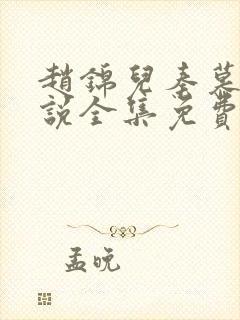 趙錦兒秦慕
說全集免費
孟晚